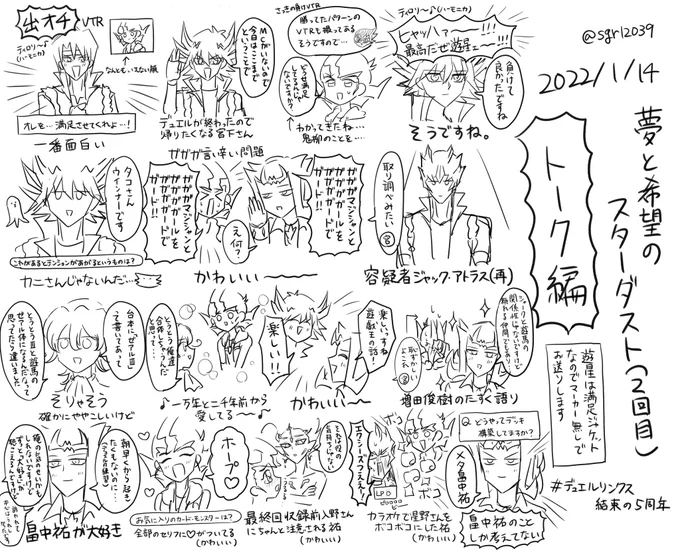 @sgr12039
2022/1/14
夢と希望の
スターダスト(2回目)
トーク編
遊星は満足ジャケット
なのでマーカー無しで
お送りします
#デュエルリンクス
結束の5周年
出オチ
VTR
ティロリ〜♪
(ハーモニカ)
なんともいえない顔
オレを…満足させてくれよ…!
一番面白い
MCがいないので
今日はここまで
ということで
デュエルが終わったので
帰りたくなる宮下さん
さっきの負けVTR
勝ってたパターンの
VTRも撮ってある
そうですので…
どうせ満足
してるんじゃ
ないですか?
わかってきたね…
鬼柳のことを…
ティロリ〜♪(ハーモニカ)
ヒャッハァー!!!
最高だぜ遊星ェー!!!
負けて
良かったですね
そうですね。
タコさん
ウィンナーです
これがあるとテンションがあがるというものは?
カニさんじゃないんだ…
ガガガ言い辛い問題
ガガガマジシャンと
ガガガガールを
ガガガガードで
ガード!!
え何?
ガガガマジシャンと
ガガガガールを
ガガガガードで
ガード!!
かわいい〜
取り調べみたい
容疑者ジャック・アトラス(再)
とうとうⅢと遊馬の
ゼアル体になったんだなって
思ってたら違いました
台本にゼアルⅢ
って書いてあって
そりゃそう
確かにややこしいけど
とうとう俺達
合体しちゃうんだ
と思って…
♪一万年と二千年前から
愛してる〜♪
楽しい!!
楽しいですね
遊戯王の話!
かわいい〜
シャークと遊馬の
関係性は
増田俊樹のたすく語り
Q. どうやってデッキ
構築してますか?
メタ畠中祐
畠中祐のこと
しか考えてない
エクシーズつえぇ!
LP0
ボコ
ボコ
カラオケで星野さんを
ボコボコにした祐
(かわいい)
最終回収録前入野さん
にちゃんと注意される祐
(かわいい)
ホープ♡
お気に入りのカード・モンスターは?
全部のセリフに♡がついてる
(かわいい)
朝早くから起き
たくもないのに…
畠中祐が大好き